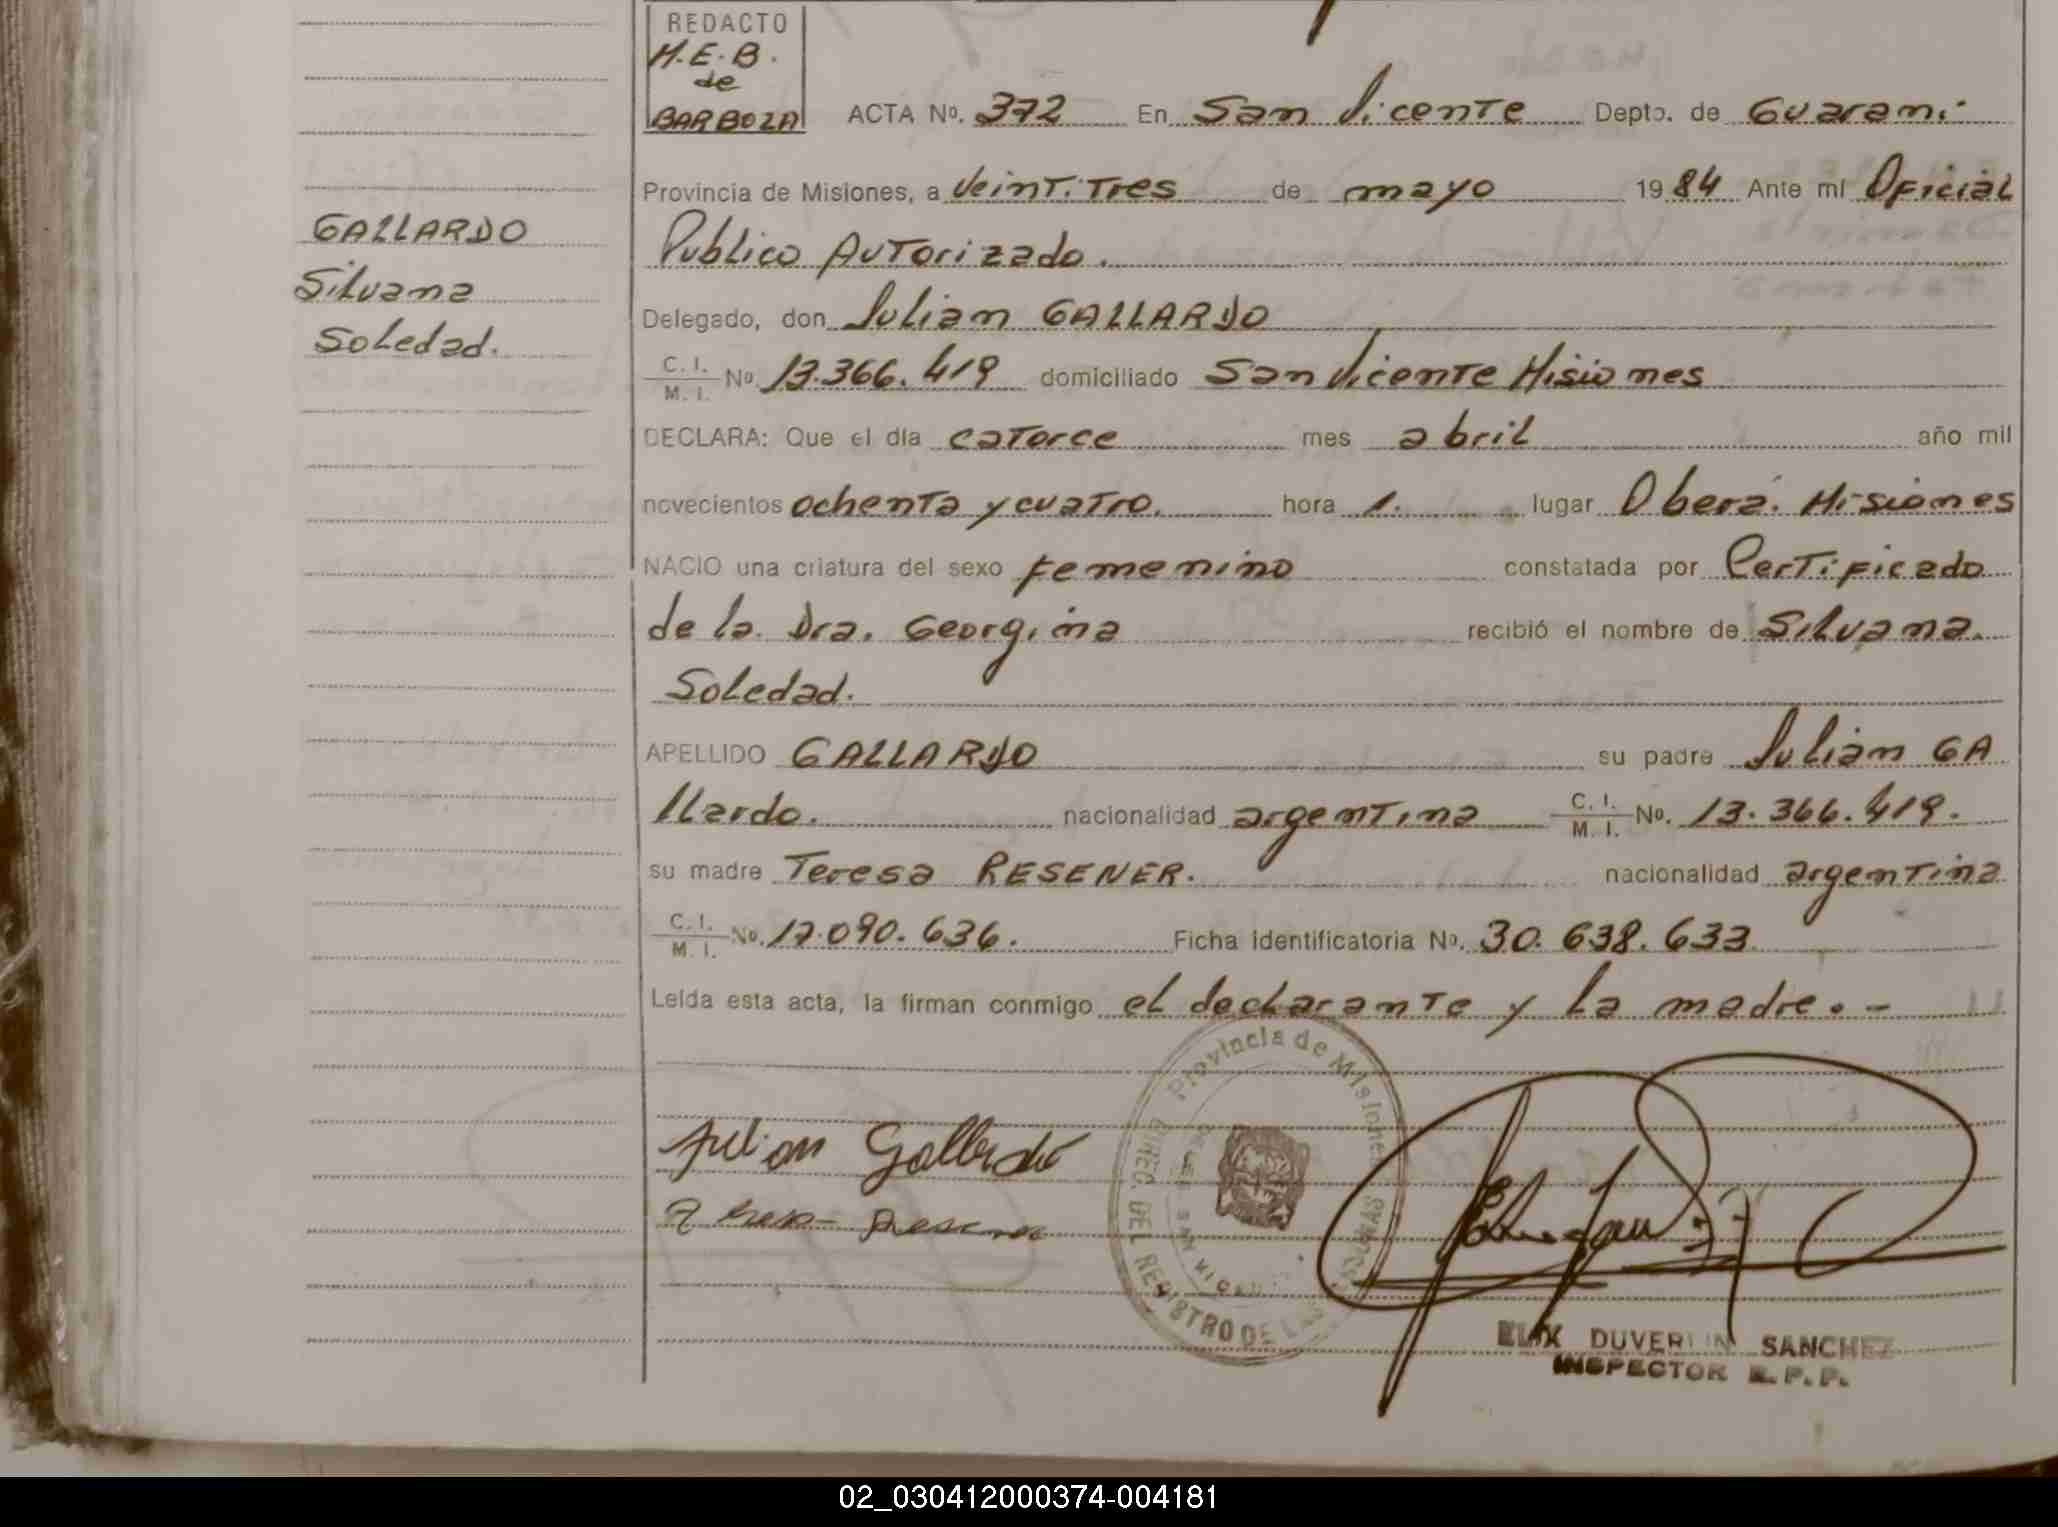 REDACTO
H.E.B.
de
BARBOZA
ACTA Nº. 372 En San Vicente Depto. de Guarani
Provincia de Misiones, a Veintitres de mayo 1984 Ante mí Oficial
Publico Autorizado.
GALLARDO
Silvana
Soledad.
Delegado, don Julian GALLARDO
C. I. / M. I. Nº 13.366.419 domiciliado San Vicente Misiones
DECLARA: Que el día catorce mes abril año mil
novecientos ochenta y cuatro. hora 1. lugar Oberá. Misiones
NACIO una criatura del sexo femenino constatada por Certificado
de la Dra. Georgina recibió el nombre de Silvana
Soledad.
APELLIDO GALLARDO su padre Julian GA
llardo. nacionalidad argentina C. I. / M. I. Nº. 13.366.419.
su madre Teresa RESENER. nacionalidad argentina
C. I. / M. I. Nº. 12.090.636. Ficha identificatoria Nº. 30.638.633
Leída esta acta, la firman conmigo el declarante y la madre. -
Provincia de Misiones
DIREC. DEL REGISTRO DE LAS PERSONAS
Julian Gallardo
Teresa Resener
ELIX DUVERLIN SANCHEZ
INSPECTOR R.P.P.
02_030412000374-004181